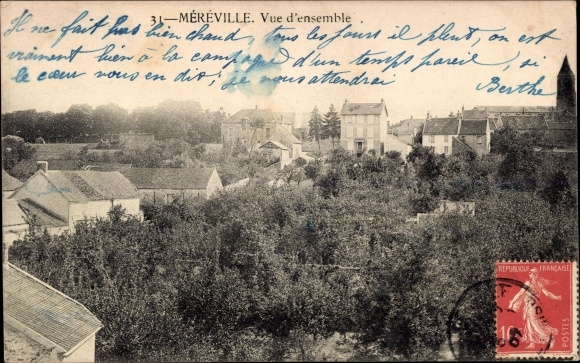 31—MÉRÉVILLE. Vue d'ensemble
Il ne fait pas bien chaud, tous les jours il pleut, on est
vraiment bien à la campagne d'un temps pareil, si
le cœur vous en dit, je vous attendrai
Berthe
REPUBLIQUE FRANÇAISE
10